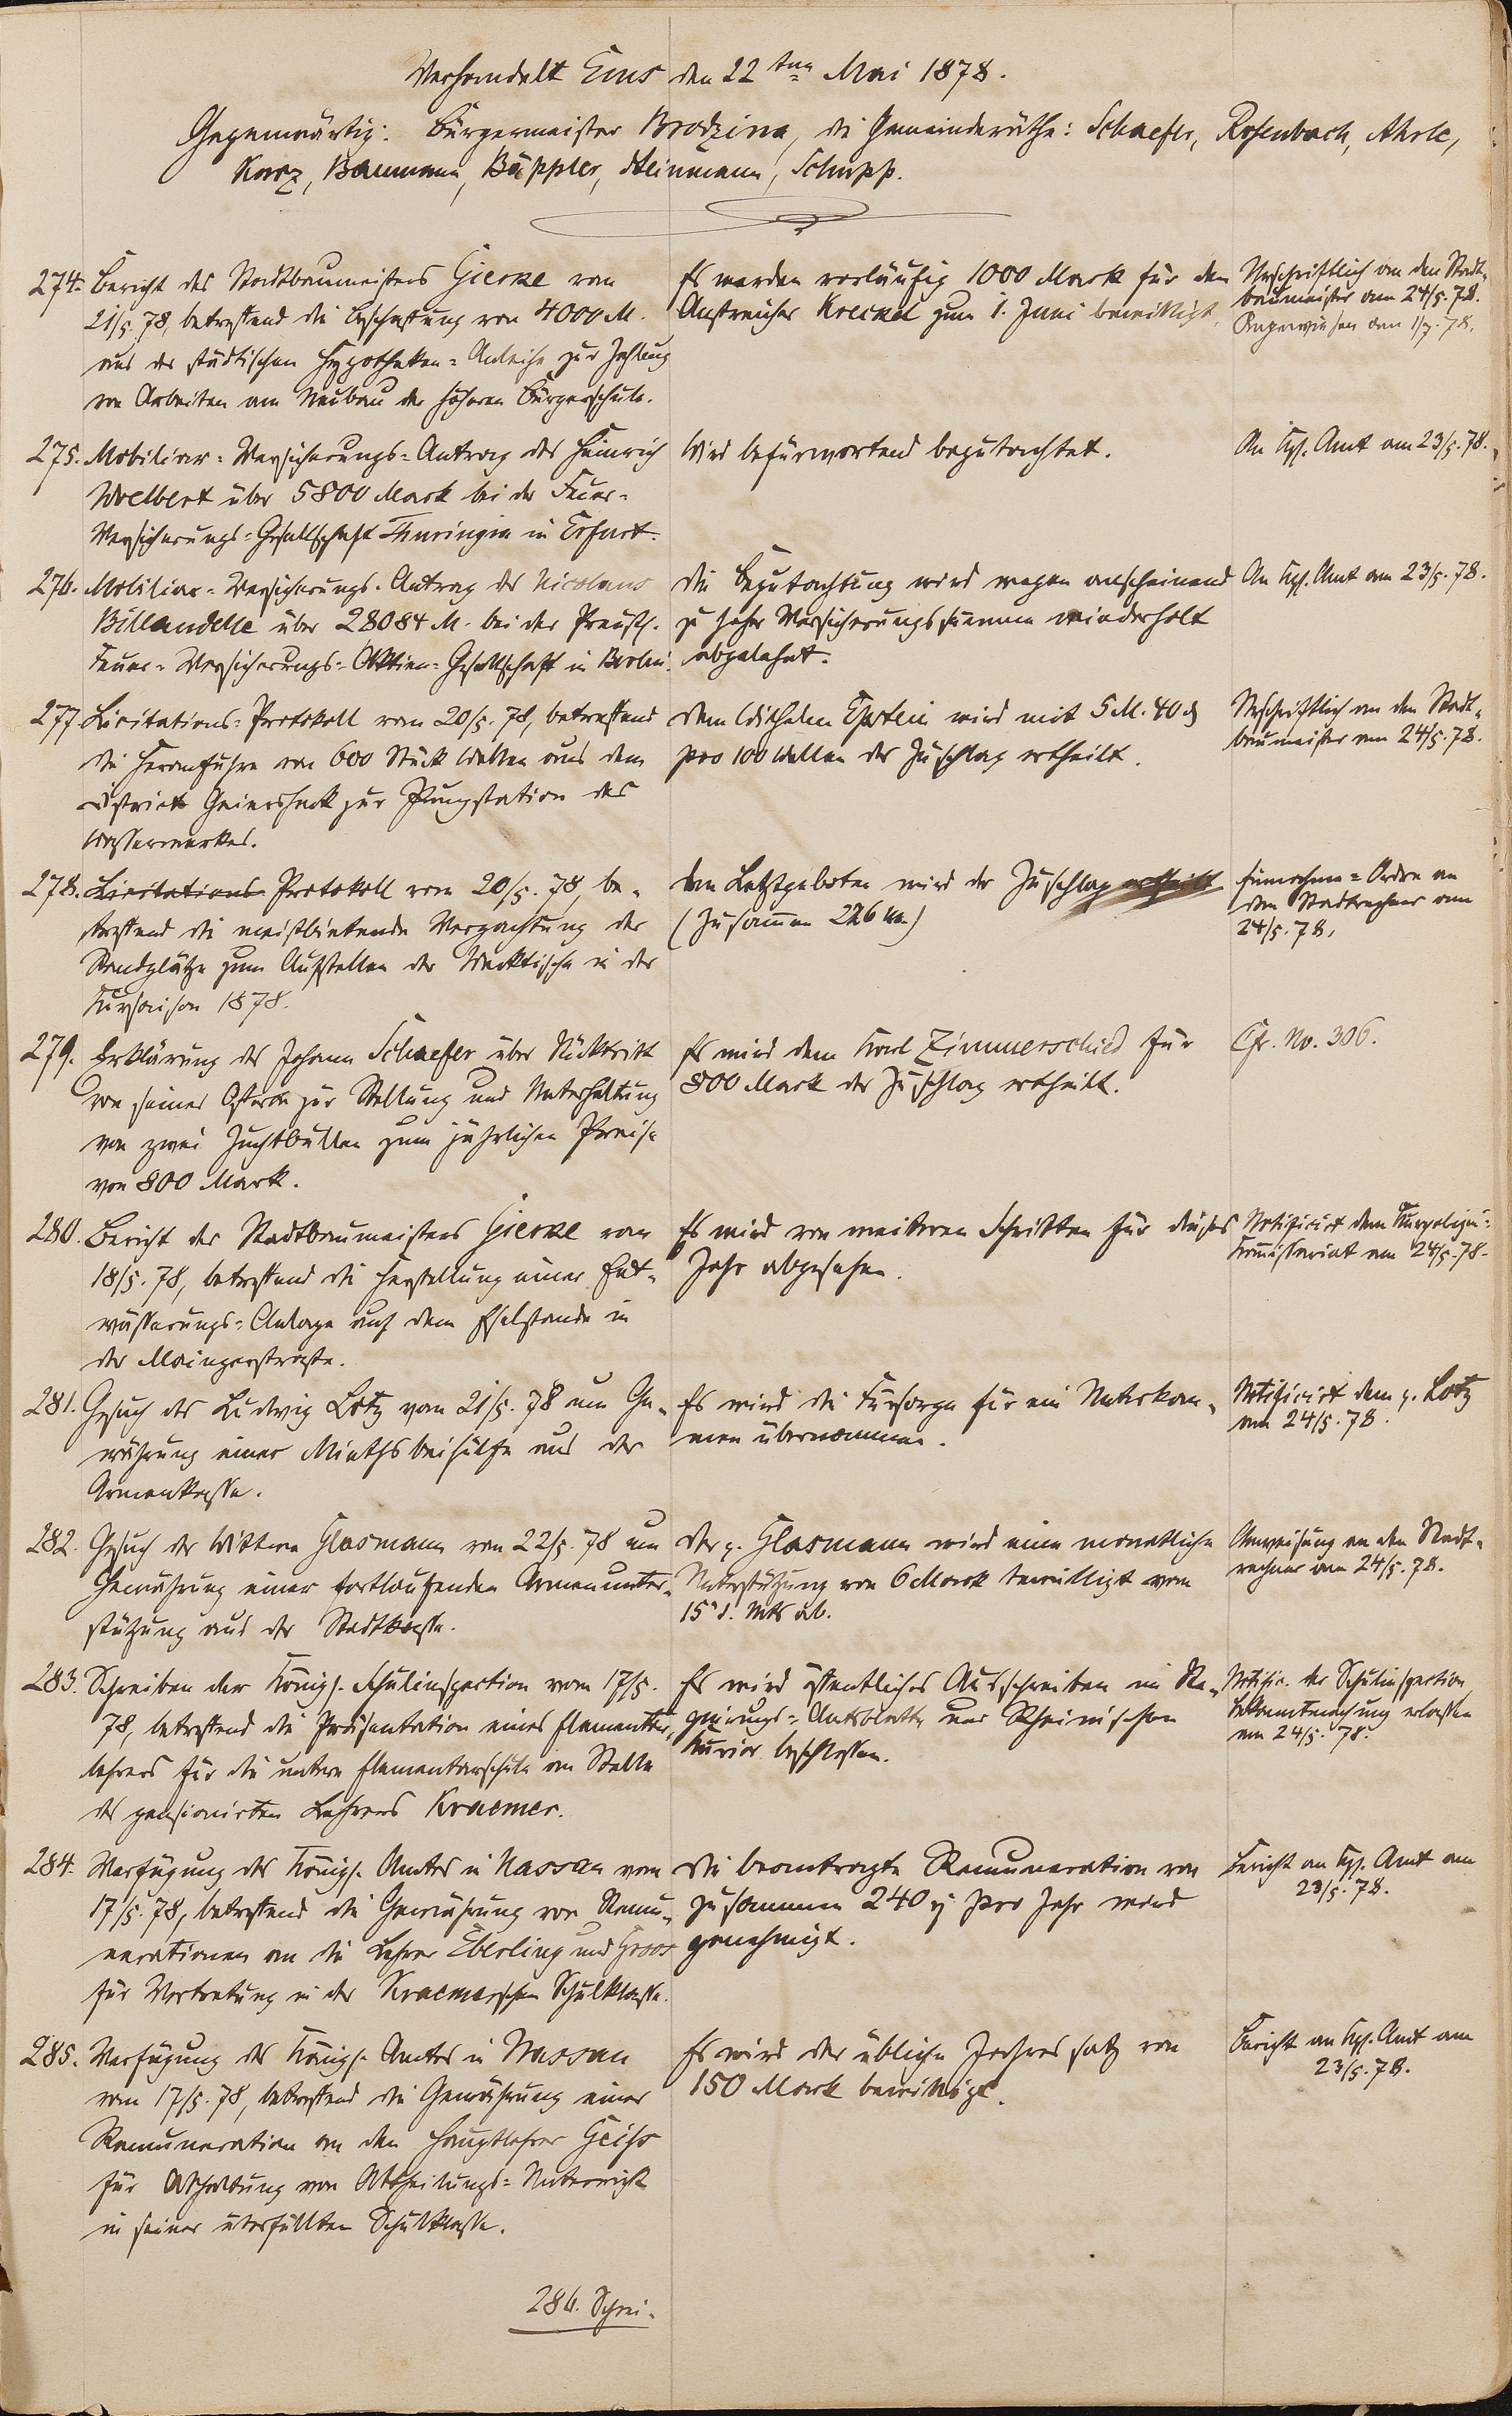 Verhandelt Ems den 22ten Mai 1878.
Gegenwärtig: Bürgermeister Brodzina, die Gemeinderäthe: Schaefer, Rosenbach, Ahrle,
Karz, Baumann, Bäppler, Heinmann, Schupp.
274. Bericht des Stadtbaumeisters Gierke vom
21/5. 78, betreffend die Beschaffung von 4000 M.
aus der städtischen Hypotheken-Anleihe zur Zahlung
von Arbeiten am Neubau der höheren Bürgerschule.
Es werden vorläufig 1000 Mark für den
Anstreicher Kreckel zum 1. Juni bewilligt.
Urschriftlich an den Stadt-
baumeister am 24/5. 78.
Angewiesen am 1/7. 78.
275. Mobiliar-Versicherungs-Antrag des Heinrich
Woelbert über 5800 Mark bei der Feuer-
Versicherungs-Gesellschaft Thuringia in Erfurt.
Wird befürwortend begutachtet.
An Kgl. Amt am 23/5. 78.
276. Mobiliar-Versicherungs-Antrag des Nicolaus
Billaudelle über 28084 M. bei der Preuß.
Feuer-Versicherungs-Aktien-Gesellschaft in Berlin.
Die Begutachtung wird wegen anscheinend
zu hoher Versicherungssummen wiederholt
abgelehnt.
An Kgl. Amt am 23/5. 78.
277. Licitations-Protokoll vom 20/5. 78, betreffend
die Heranfuhre von 600 Stück Wellen aus dem
District Geiershack zur Pumpstation des
Wasserwerkes.
Dem Wilhelm Epstein wird mit 5 M. 40 ₰
pro 100 Wellen der Zuschlag ertheilt.
Urschriftlich an den Stadt-
baumeister am 24/5. 78.
278. Licitations-Protokoll vom 20/5. 78, be-
treffend die meistbietende Verpachtung der
Standplätze zum Aufstellen der Wecktische in der
Kursaison 1878.
Den Letztgeboten wird der Zuschlag ertheilt
(Zusammen 226 M.)
Einnahme-Ordre an
den Stadtrechner am
24/5. 78.
279. Erklärung des Johann Schaefer über Rücktritt
von seiner Offerte zur Stellung und Unterhaltung
von zwei Zuchtbullen zum jährlichen Preise
von 800 Mark.
Es wird dem Karl Zimmerschied für
800 Mark der Zuschlag ertheilt.
Cfr. No. 306.
280. Bericht des Stadtbaumeisters Gierke vom
18/5. 78, betreffend die Herstellung einer Ent-
wässerungs-Anlage auf dem Eselstande in
der Mainzerstraße.
Es wird von weiteren Schritten für dieses
Jahr abgesehen.
Notificirt dem Kurpolizei-
Kommissariat am 24/5. 78.
281. Gesuch des Ludwig Lotz vom 21/5. 78 um Ge-
währung einer Miethsbeihülfe aus der
Armenkasse.
Es wird die Fürsorge für ein Unterkom-
men übernommen.
Notificirt dem p. Lotz
am 24/5. 78.
282. Gesuch der Wittwe Glasmann vom 22/5. 78 um
Gewährung einer fortlaufenden Armenunter-
stützung aus der Stadtkasse.
Der p. Glasmann wird eine monatliche
Unterstützung von 6 Mark bewilligt vom
15. d. Mts ab.
Anweisung an den Stadt-
rechner am 24/5. 78.
283. Schreiben der Königl. Schulinspection vom 17/5.
78, betreffend die Präsentation eines Elementar-
lehrers für die untere Elementarschule an Stelle
des pensionirten Lehrers Kraemer.
Es wird öffentliches Ausschreiben im Re-
gierungs-Amtsblatte und Rheinischen
Kurier beschlossen.
Notific. der Schulinspection,
Bekanntmachung erlassen
am 24/5. 78.
284. Verfügung des Königl. Amtes in Nassau vom
17/5. 78, betreffend die Gewährung von Remu-
nerationen an die Lehrer Eberling und Groos
für Vertretung in der Kraemerschen Schulklasse.
Die beantragte Remuneration von
zusammen 240 M pro Jahr wird
genehmigt.
Bericht an Kgl. Amt am
23/5. 78.
285. Verfügung des Königl. Amtes in Nassau
vom 17/5. 78, betreffend die Gewährung einer
Remuneration an den Hauptlehrer Geiß
für Abhaltung von Abtheilungs-Unterricht
in seiner überfüllten Schulklasse.
Es wird der übliche Jahressatz von
150 Mark bewilligt.
Bericht an Kgl. Amt am
23/5. 78.
286. Schrei-